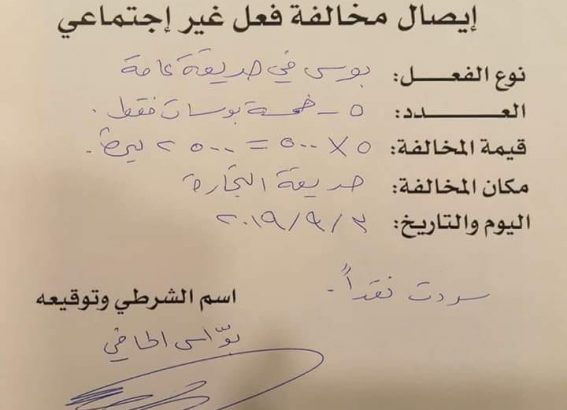 إيصال مخالفة فعل غير إجتماعي
نوع الفعـــــل: بوس في حديقة عامة
العـــــــــدد: ٥ - خمسة بوسات فقط.
قيمة المخالفة: ٥ × ٥٠٠ = ٢٥٠٠ ليرة.
مكان المخالفة: حديقة التجارة
اليوم والتاريخ: ٢٠١٩/٩/٣
سددت نقداً.
اسم الشرطي وتوقيعه
بوّاس الحافي